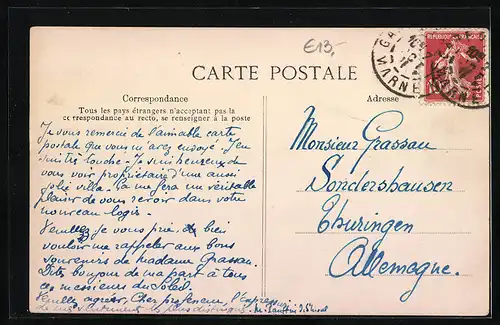 £13,-
CARTE POSTALE
Correspondance
Tous les pays étrangers n'acceptant pas la
correspondance au recto, se renseigner à la poste
Adresse
REPUBLIQUE FRANÇAISE
MARNE
Je vous remercie de l'aimable carte
postale que vous m'avez envoyé. J'en
suis très touché. Je suis heureux de
vous voir propriétaire d'une aussi
jolie villa. Ça me fera un véritable
plaisir de vous revoir dans votre
nouveau logis.
Veuillez je vous prie, de bien
vouloir me rappeler aux bons
souvenirs de madame Grassau.
Dites bonjour de ma part à tous
ces messieurs du Soleil.
Veuillez agréer, Cher professeur, l'Expression
de mes sentiments les plus distingués.
Monsieur Grassau
Sondershausen
Thuringen
Allemagne.